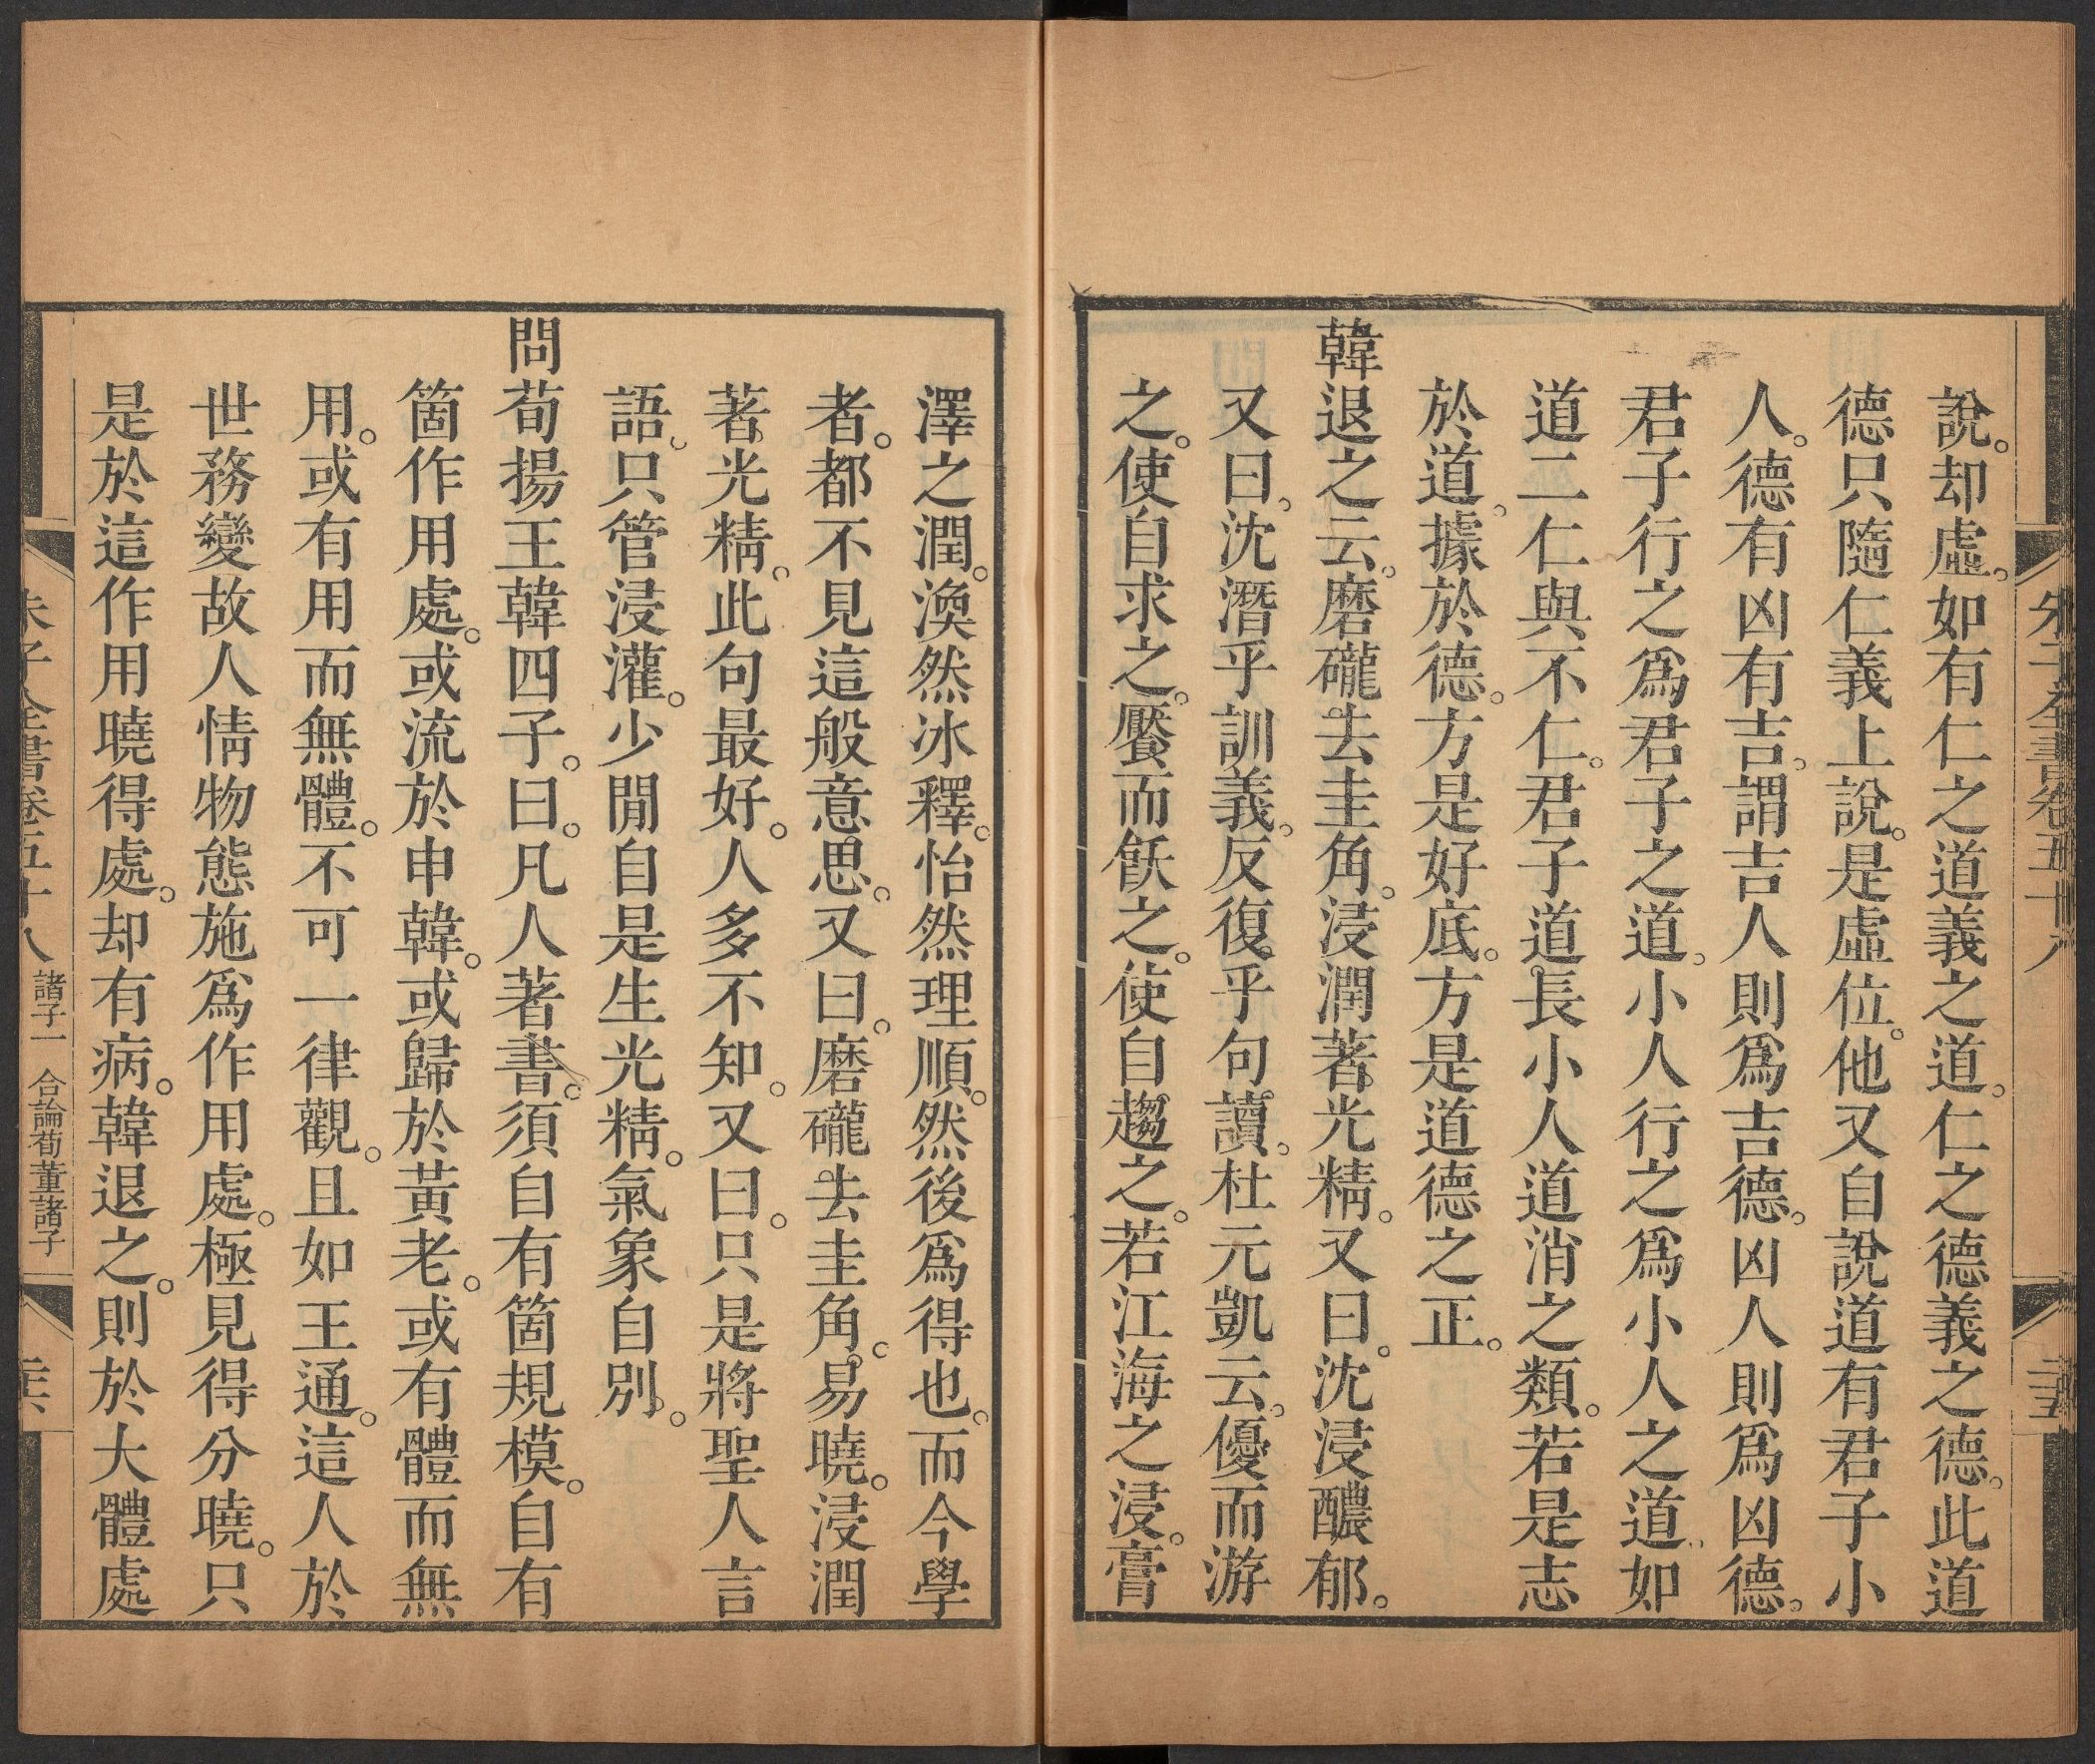 說。却虛。如有仁之道義之道。仁之德義之德。此道
德只隨仁義上說。是虛位。他又自說道有君子小
人。德有凶有吉。謂吉人則爲吉德。凶人則爲凶德。
君子行之爲君子之道。小人行之爲小人之道。如
道二仁與不仁。君子道長小人道消之類。若是志
於道。據於德。方是好底。方是道德之正。
韓退之云。磨礲去圭角。浸潤著光精。又曰。沈浸醲郁。
又曰。沈潛乎訓義。反復乎句讀。杜元凱云。優而游
之。使自求之。饜而飫之。使自趨之。若江海之浸。膏
朱子全書卷五十八
三五
澤之潤。渙然冰釋。怡然理順。然後爲得也。而今學
者。都不見這般意思。又曰。磨礲去圭角。易曉。浸潤
著光精。此句最好。人多不知。又曰。只是將聖人言
語。只管浸灌。少閒自是生光精。氣象自別。
問荀揚王韓四子。曰。凡人著書。須自有箇規模。自有
箇作用處。或流於申韓。或歸於黃老。或有體而無
用。或有用而無體。不可一律觀。且如王通。這人於
世務變故人情物態施爲作用處。極見得分曉。只
是於這作用曉得處。却有病。韓退之。則於大體處
朱子全書卷五十八 諸子一 合論荀董諸子